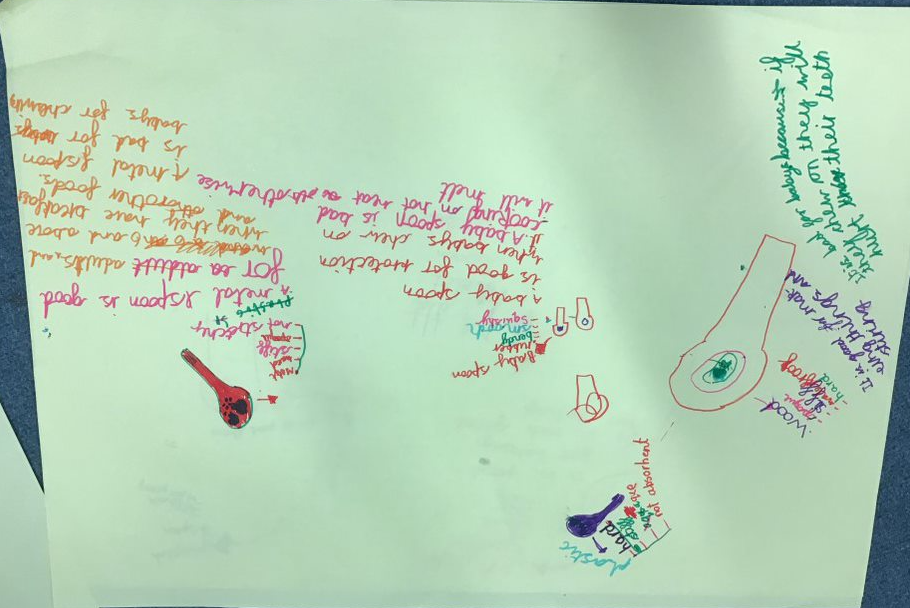 plastic
hard
stiff
opaqe
not absorbent
wood
opaque
stiff
hard
It is good for mak-
ing things and
string
It is bad for babys because if
they chew on they will
hurt their teeth
Baby spoon
rubber
bendy
smooth
squishy
a baby spoon
is good for protection
when babys chew on
it. A baby spoon is bad
cooking on not heat otherwise
it will melt
not stretchy
opaque
stiff
hard
A metal spoon is good
for adults and
6 and above
when they have breakfast
and other foods.
A metal spoon
is bad for
babys for chewing